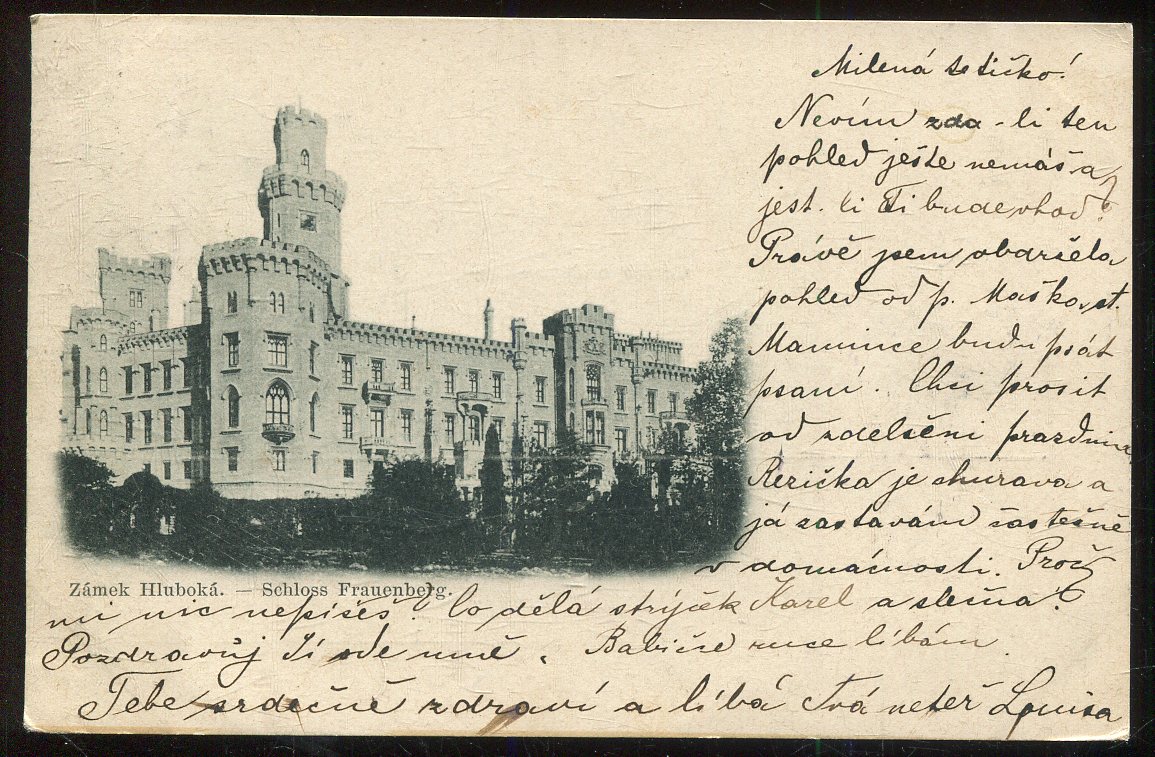 Milená tetičko!
Nevím zda-li ten
pohled ješte nemáš a
jest. li Ti bude vhod?
Právě jsem obdržela
pohled od p.
Mamince budu psát
psaní. Chci prosit
od zdelšéni prazdnin.
Rezička je churava a
já zastavám částečně
v domácnosti. Proč
Zámek Hluboká. — Schloss Frauenberg.
mi nic nepíšeš? Co dělá strýček Karel a slečna?
Pozdravůj Jí ode mně. Babičce ruce líbám.
Tebe srdečně zdraví a líbá Tvá neteř Louisa